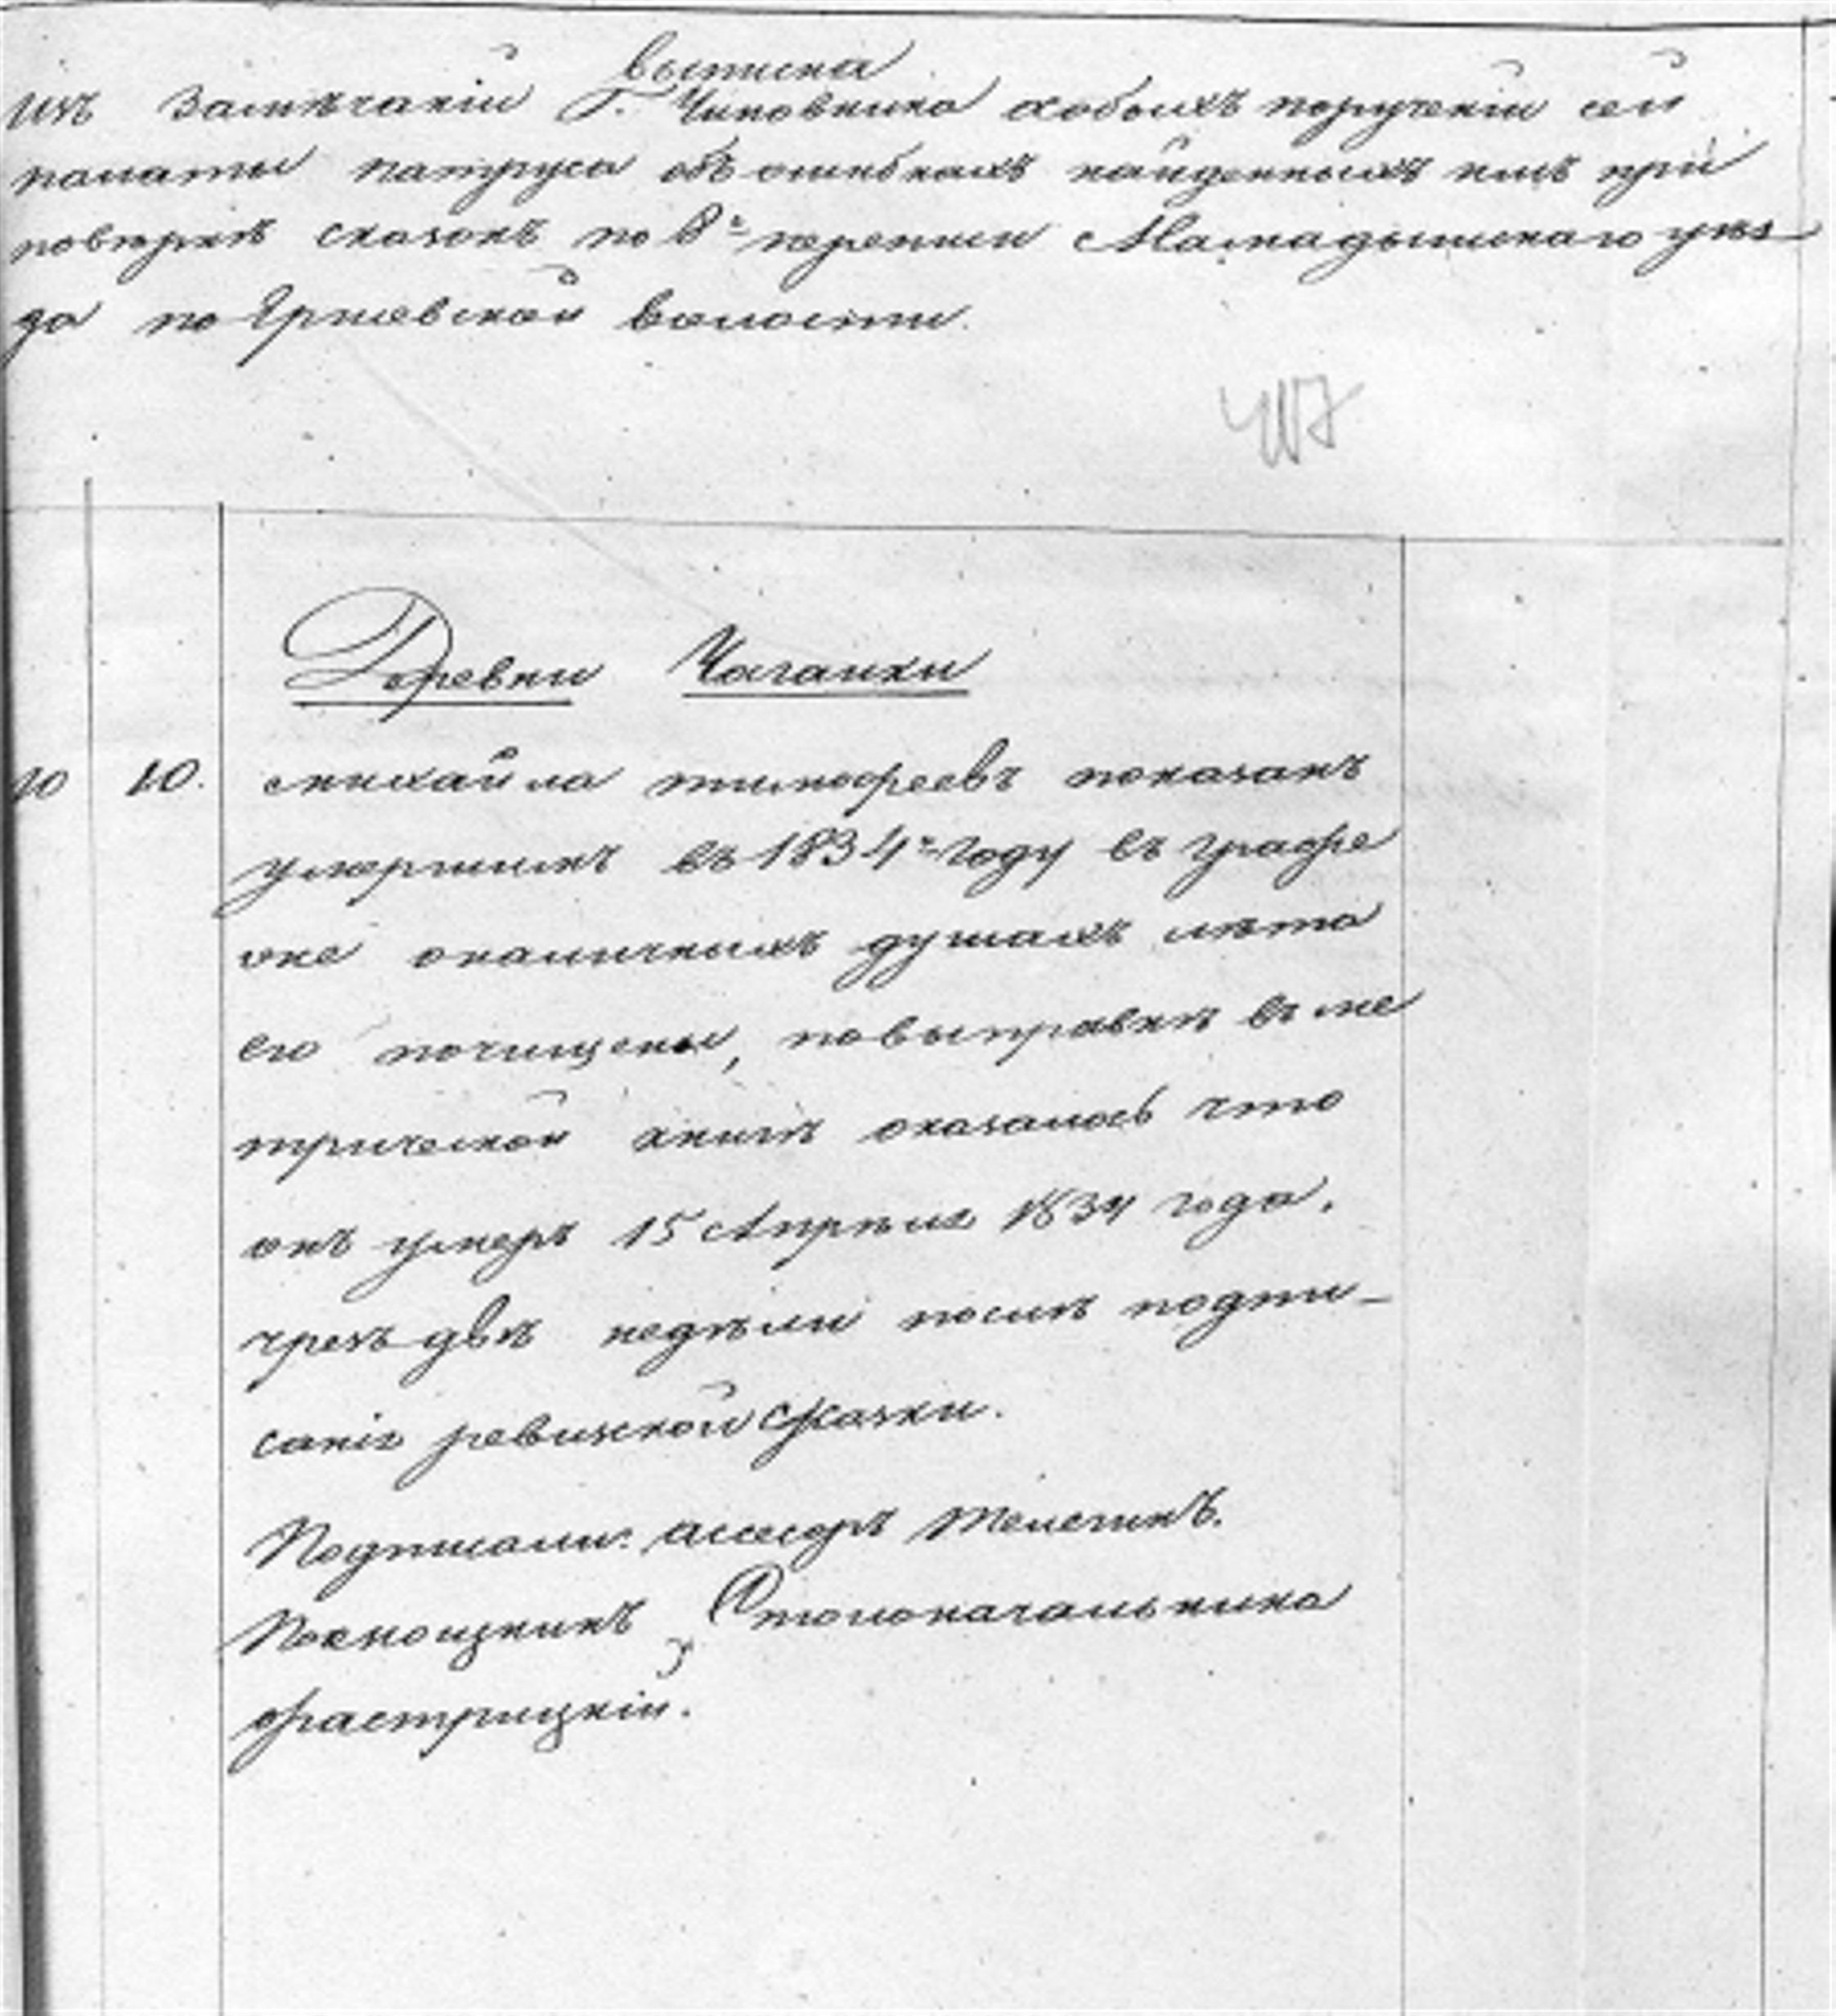 выписка
Изъ Замѣчаній Г. Чиновника особыхъ порученій сей
палаты Патруса объ ошибкахъ найденныхъ имъ при
повѣркѣ сказокъ по 8й переписи Мамадышскаго уѣз
да по волости.
Деревни Чаганки
10 10. Михайла тимофеевъ показанъ
умершимъ въ 1834м году въ графѣ
же оналичныхъ душахъ лѣта
его почищены, повыправкѣ въ ме
трической книгѣ оказалось что
онъ умеръ 15 Апрѣля 1834 года.
чрезъ двѣ недѣли послѣ подпи-
санія ревизской Скаски.
Подписали: асесоръ
Столоначальника